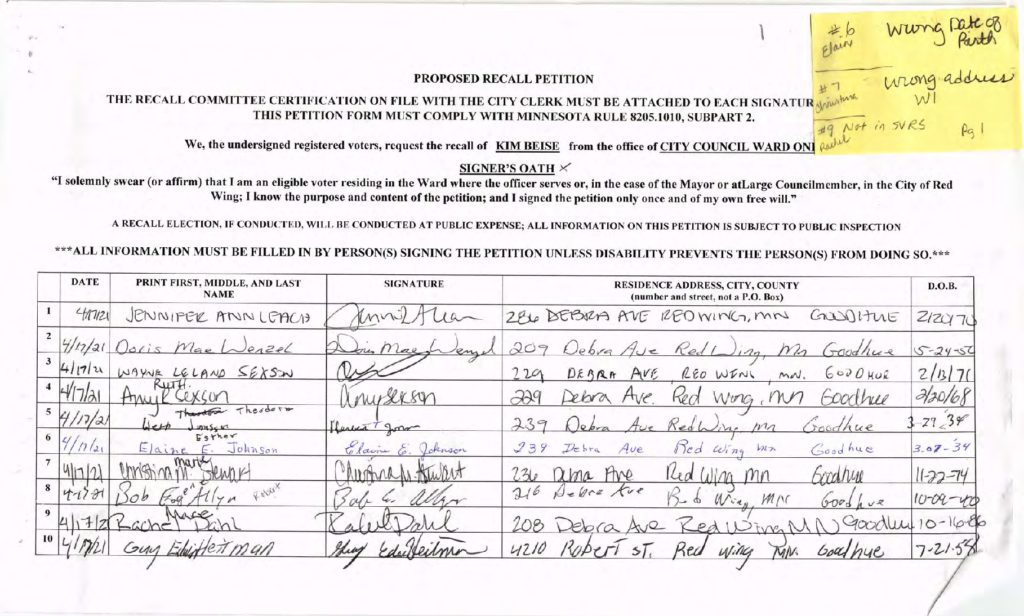 1
#6 Wrong Date of
Elain Birth
#7 wrong address
Christina WI
#9 Not in SVRS Pg 1
Rachel
PROPOSED RECALL PETITION
THE RECALL COMMITTEE CERTIFICATION ON FILE WITH THE CITY CLERK MUST BE ATTACHED TO EACH SIGNATUR
THIS PETITION FORM MUST COMPLY WITH MINNESOTA RULE 8205.1010, SUBPART 2.
We, the undersigned registered voters, request the recall of KIM BEISE from the office of CITY COUNCIL WARD ON
SIGNER'S OATH
"I solemnly swear (or affirm) that I am an eligible voter residing in the Ward where the officer serves or, in the case of the Mayor or atLarge Councilmember, in the City of Red
Wing; I know the purpose and content of the petition; and I signed the petition only once and of my own free will."
A RECALL ELECTION, IF CONDUCTED, WILL BE CONDUCTED AT PUBLIC EXPENSE; ALL INFORMATION ON THIS PETITION IS SUBJECT TO PUBLIC INSPECTION
***ALL INFORMATION MUST BE FILLED IN BY PERSON(S) SIGNING THE PETITION UNLESS DISABILITY PREVENTS THE PERSON(S) FROM DOING SO.***
DATE PRINT FIRST, MIDDLE, AND LAST NAME SIGNATURE RESIDENCE ADDRESS, CITY, COUNTY (number and street, not a P.O. Box) D.O.B.
1 4/17/21 JENNIFER ANN LEACH 286 DEBRA AVE RED WING, MN GOODHUE 2/20/70
2 4/17/21 Doris Mae Wenzel Doris Mae Wenzel 209 Debra Ave Red Wing, Mn Goodhue 5-24-50
3 4/17/21 WAYNE LELAND SEXSON 229 DEBRA AVE RED WING, MN. GOODHUE 2/13/71
4 4/17/21 Amy Ruth Sexson Amy Sexson 229 Debra Ave. Red Wing, MN Goodhue 2/20/68
5 4/17/21 Theodore 239 Debra Ave Red Wing mn Goodhue 3-27-34
6 4/17/21 Elaine E. Esther Johnson Elaine E. Johnson 239 Debra Ave Red Wing mn Goodhue 3-07-34
7 4/17/21 Christina M. Marie Stewart Christina M. Stewart 236 Debra Ave Red Wing mn Goodhue 11-22-74
8 4-17-21 Bob Allyn Robert 216 Debra Ave Red Wing MN Goodhue 10-09-40
9 4/17/21 Rachel Mae Dahl Rachel Dahl 208 Debra Ave Red Wing MN Goodhue 10-16-86
10 4/17/21 Guy Heitman Guy Heitman 4210 Robert ST. Red Wing MN. Goodhue 7-21-58